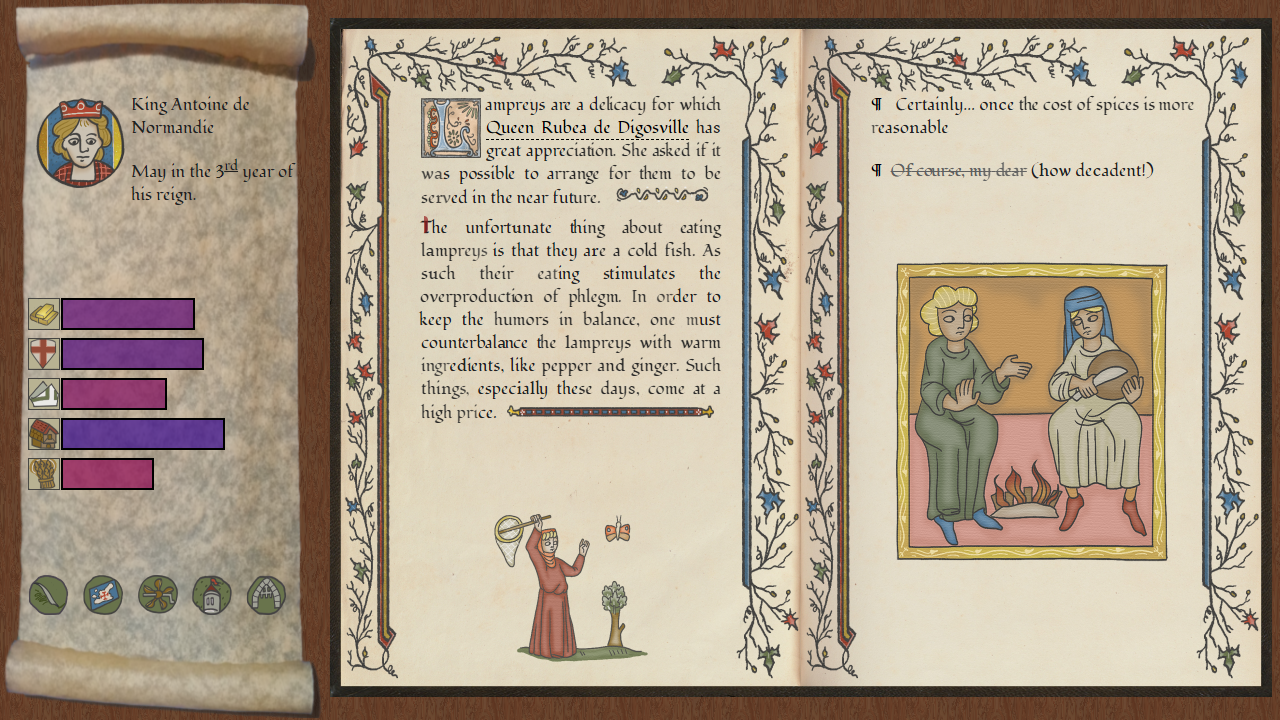 King Antoine de
Normandie
May in the 3rd year of
his reign.
Lampreys are a delicacy for which
Queen Rubea de Digosville has
great appreciation. She asked if it
was possible to arrange for them to be
served in the near future.
The unfortunate thing about eating
lampreys is that they are a cold fish. As
such their eating stimulates the
overproduction of phlegm. In order to
keep the humors in balance, one must
counterbalance the lampreys with warm
ingredients, like pepper and ginger. Such
things, especially these days, come at a
high price.
¶ Certainly... once the cost of spices is more
reasonable
¶ Of course, my dear (how decadent!)